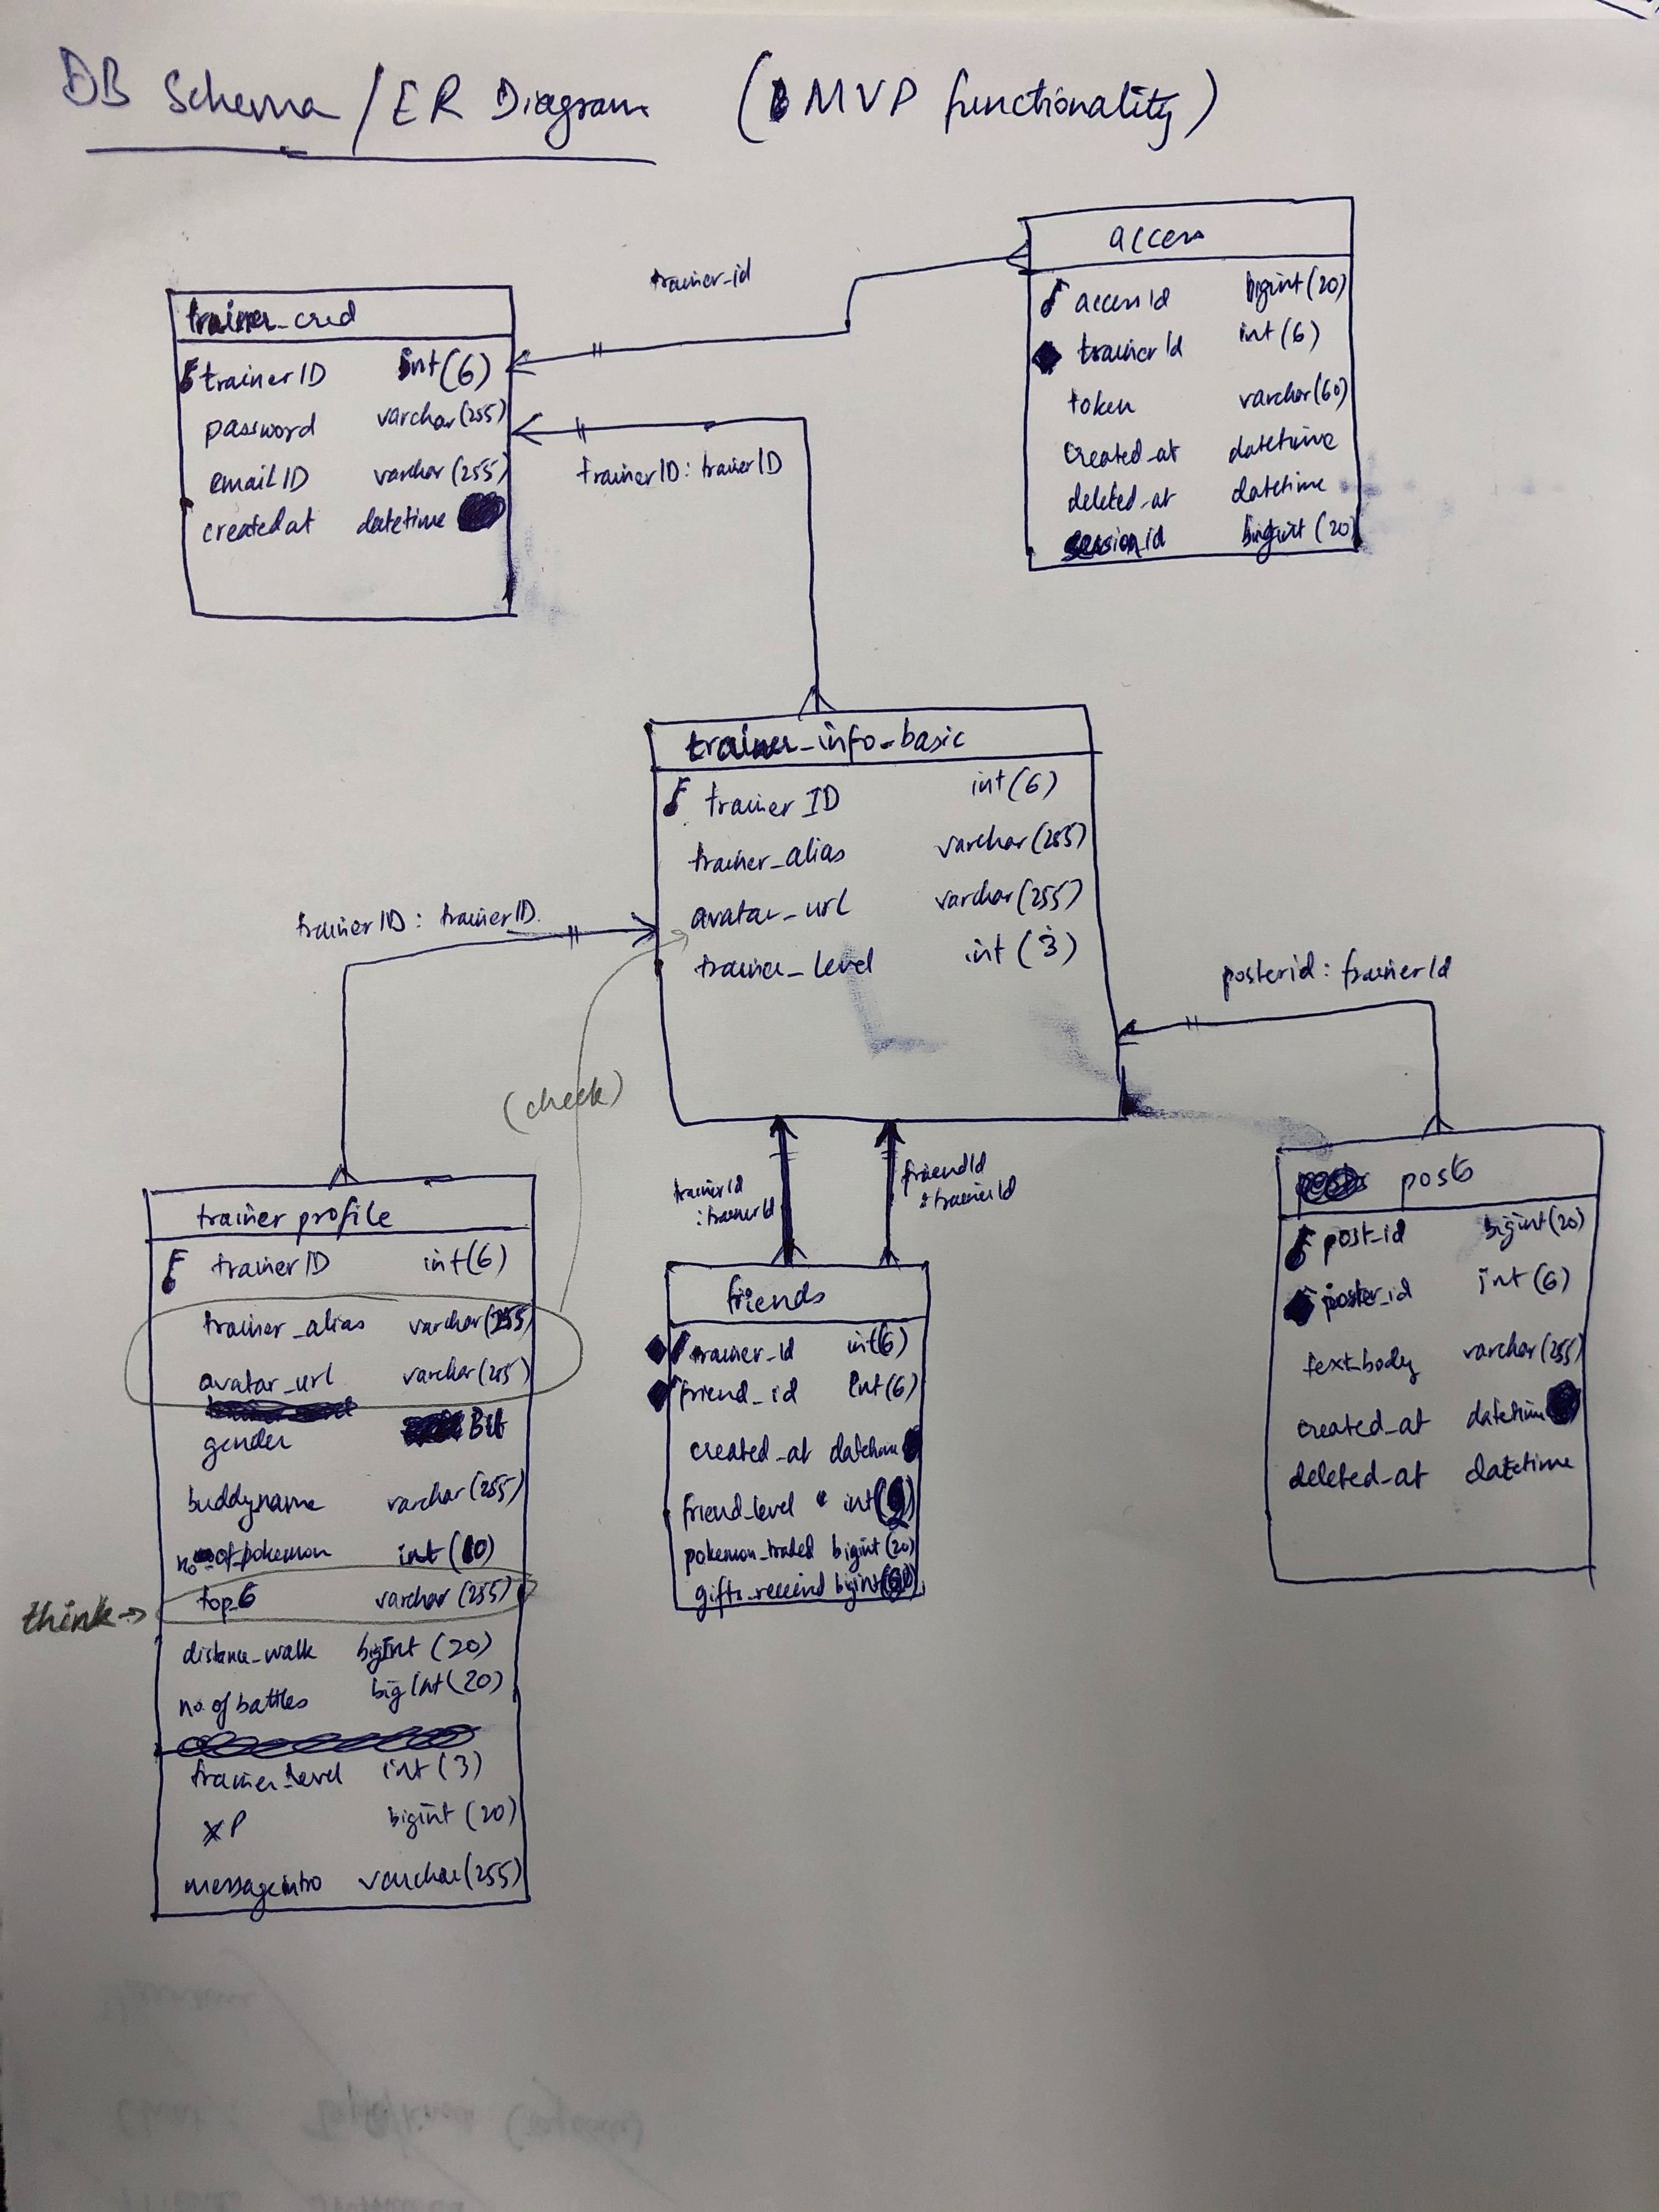 DB Schema / ER Diagram (MVP functionality)
trainer_cred
trainerID int(6)
password varchar(255)
emailID varchar(255)
createdat datetime
trainer_id
access
accessId bigint(20)
trainerId int(6)
token varchar(60)
created_at datetime
deleted_at datetime
session_id bigint(20)
trainerID: trainerID
trainer_info_basic
trainer ID int(6)
trainer_alias varchar(255)
avatar_url varchar(255)
trainer_level int(3)
trainerID: trainerID
(check)
posterid: trainerId
trainer profile
trainerID int(6)
trainer_alias varchar(255)
avatar_url varchar(255)
gender Bit
buddyname varchar(255)
no_of_pokemon int(10)
think→ top_6 varchar(255)
distance_walk bigint(20)
no. of battles bigInt(20)
trainer_level int(3)
XP bigint(20)
messageintro varchar(255)
trainerId
:trainerId
friendId
:trainerId
friends
trainer_id int(6)
friend_id int(6)
created_at datetime
friend_level int
pokemon_traded bigint(20)
gifts_received bigint
posts
post_id bigint(20)
poster_id int(6)
text_body varchar(255)
created_at datetime
deleted_at datetime